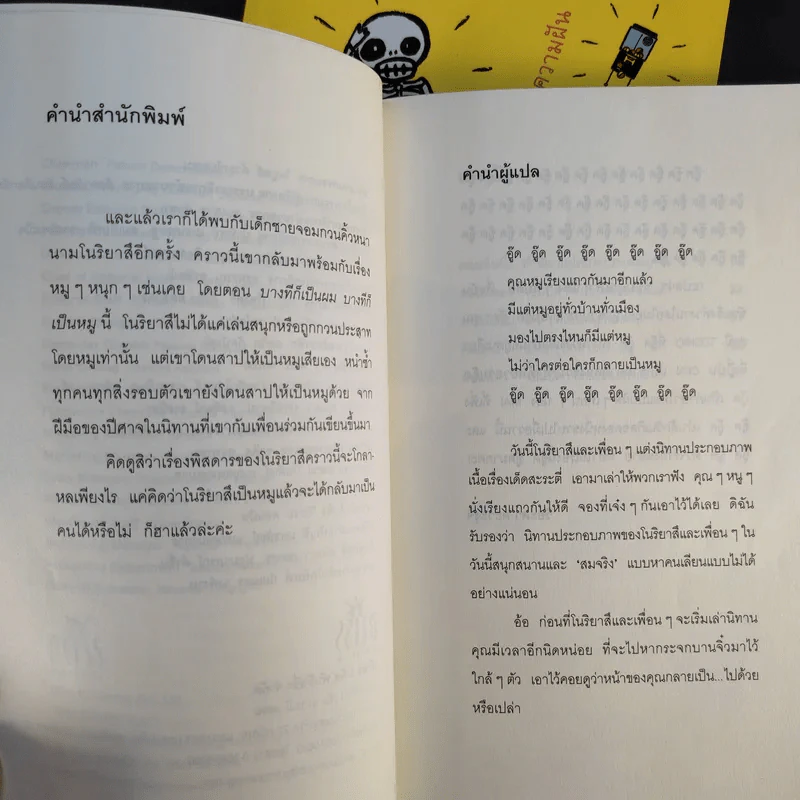 ความฝัน
คำนำสำนักพิมพ์
และแล้วเราก็ได้พบกับเด็กชายจอมกวนคิ้วหนา
นามโนริยาสึอีกครั้ง คราวนี้เขากลับมาพร้อมกับเรื่อง
หมู ๆ หนุก ๆ เช่นเคย โดยตอน บางทีก็เป็นผม บางทีก็
เป็นหมู นี้ โนริยาสึไม่ได้แค่เล่นสนุกหรือถูกกวนประสาท
โดยหมูเท่านั้น แต่เขาโดนสาปให้เป็นหมูเสียเอง หนำซ้ำ
ทุกคนทุกสิ่งรอบตัวเขายังโดนสาปให้เป็นหมูด้วย จาก
ฝีมือของปีศาจในนิทานที่เขากับเพื่อนร่วมกันเขียนขึ้นมา
คิดดูสิว่าเรื่องพิสดารของโนริยาสึคราวนี้จะโกลา-
หลเพียงไร แค่คิดว่าโนริยาสึเป็นหมูแล้วจะได้กลับมาเป็น
คนได้หรือไม่ ก็ฮาแล้วล่ะค่ะ
คำนำผู้แปล
อู๊ด อู๊ด อู๊ด อู๊ด อู๊ด อู๊ด อู๊ด อู๊ด
คุณหมูเรียงแถวกันมาอีกแล้ว
มีแต่หมูอยู่ทั่วบ้านทั่วเมือง
มองไปตรงไหนก็มีแต่หมู
ไม่ว่าใครต่อใครก็กลายเป็นหมู
อู๊ด อู๊ด อู๊ด อู๊ด อู๊ด อู๊ด อู๊ด อู๊ด
วันนี้โนริยาสึและเพื่อน ๆ แต่งนิทานประกอบภาพ
เนื้อเรื่องเด็ดสะระตี่ เอามาเล่าให้พวกเราฟัง คุณ ๆ หนู ๆ
นั่งเรียงแถวกันให้ดี จองที่เจ๋ง ๆ กันเอาไว้ได้เลย ดิฉัน
รับรองว่า นิทานประกอบภาพของโนริยาสึและเพื่อน ๆ ใน
วันนี้สนุกสนานและ ‘สมจริง’ แบบหาคนเลียนแบบไม่ได้
อย่างแน่นอน
อ้อ ก่อนที่โนริยาสึและเพื่อน ๆ จะเริ่มเล่านิทาน
คุณมีเวลาอีกนิดหน่อย ที่จะไปหากระจกบานจิ๋วมาไว้
ใกล้ ๆ ตัว เอาไว้คอยดูว่าหน้าของคุณกลายเป็น...ไปด้วย
หรือเปล่า